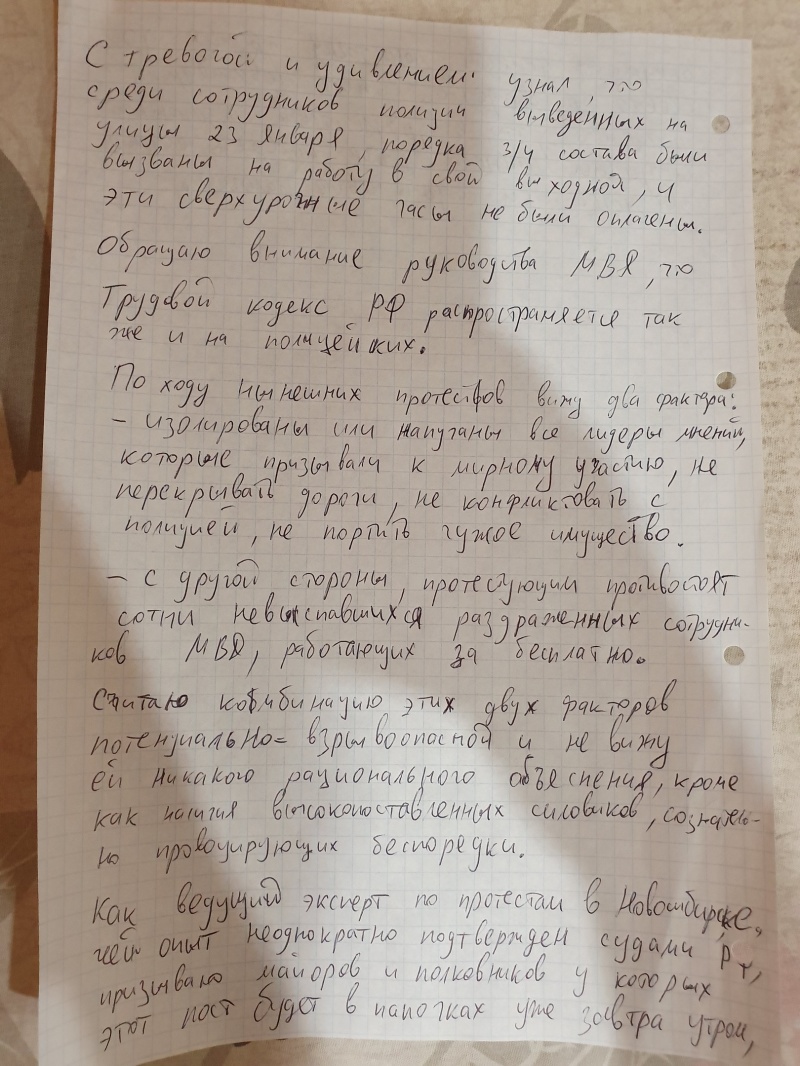 С тревогой и удивлением узнал, что
среди сотрудников полиции выведенных на
улицы 23 января, порядка 3/4 состава были
вызваны на работу в свой выходной, и
эти сверхурочные часы не были оплачены.
Обращаю внимание руководства МВД, что
Трудовой кодекс РФ распространяется так
же и на полицейских.
По ходу нынешних протестов вижу два фактора:
– изолированы или напуганы все лидеры мнений,
которые призывали к мирному участию, не
перекрывать дороги, не конфликтовать с
полицией, не портить чужое имущество.
– с другой стороны, протестующим противостоят
сотни невыспавшихся раздраженных сотрудни-
ков МВД, работающих за бесплатно.
Считаю комбинацию этих двух факторов
потенциально взрывоопасной и не вижу
ей никакого рационального объяснения, кроме
как наличия высокопоставленных силовиков, сознатель-
но провоцирующих беспорядки.
Как ведущий эксперт по протестам в Новосибирске,
чей опыт неоднократно подтвержден судами РФ,
призываю майоров и полковников у которых
этот пост будет в папочках уже завтра утром,